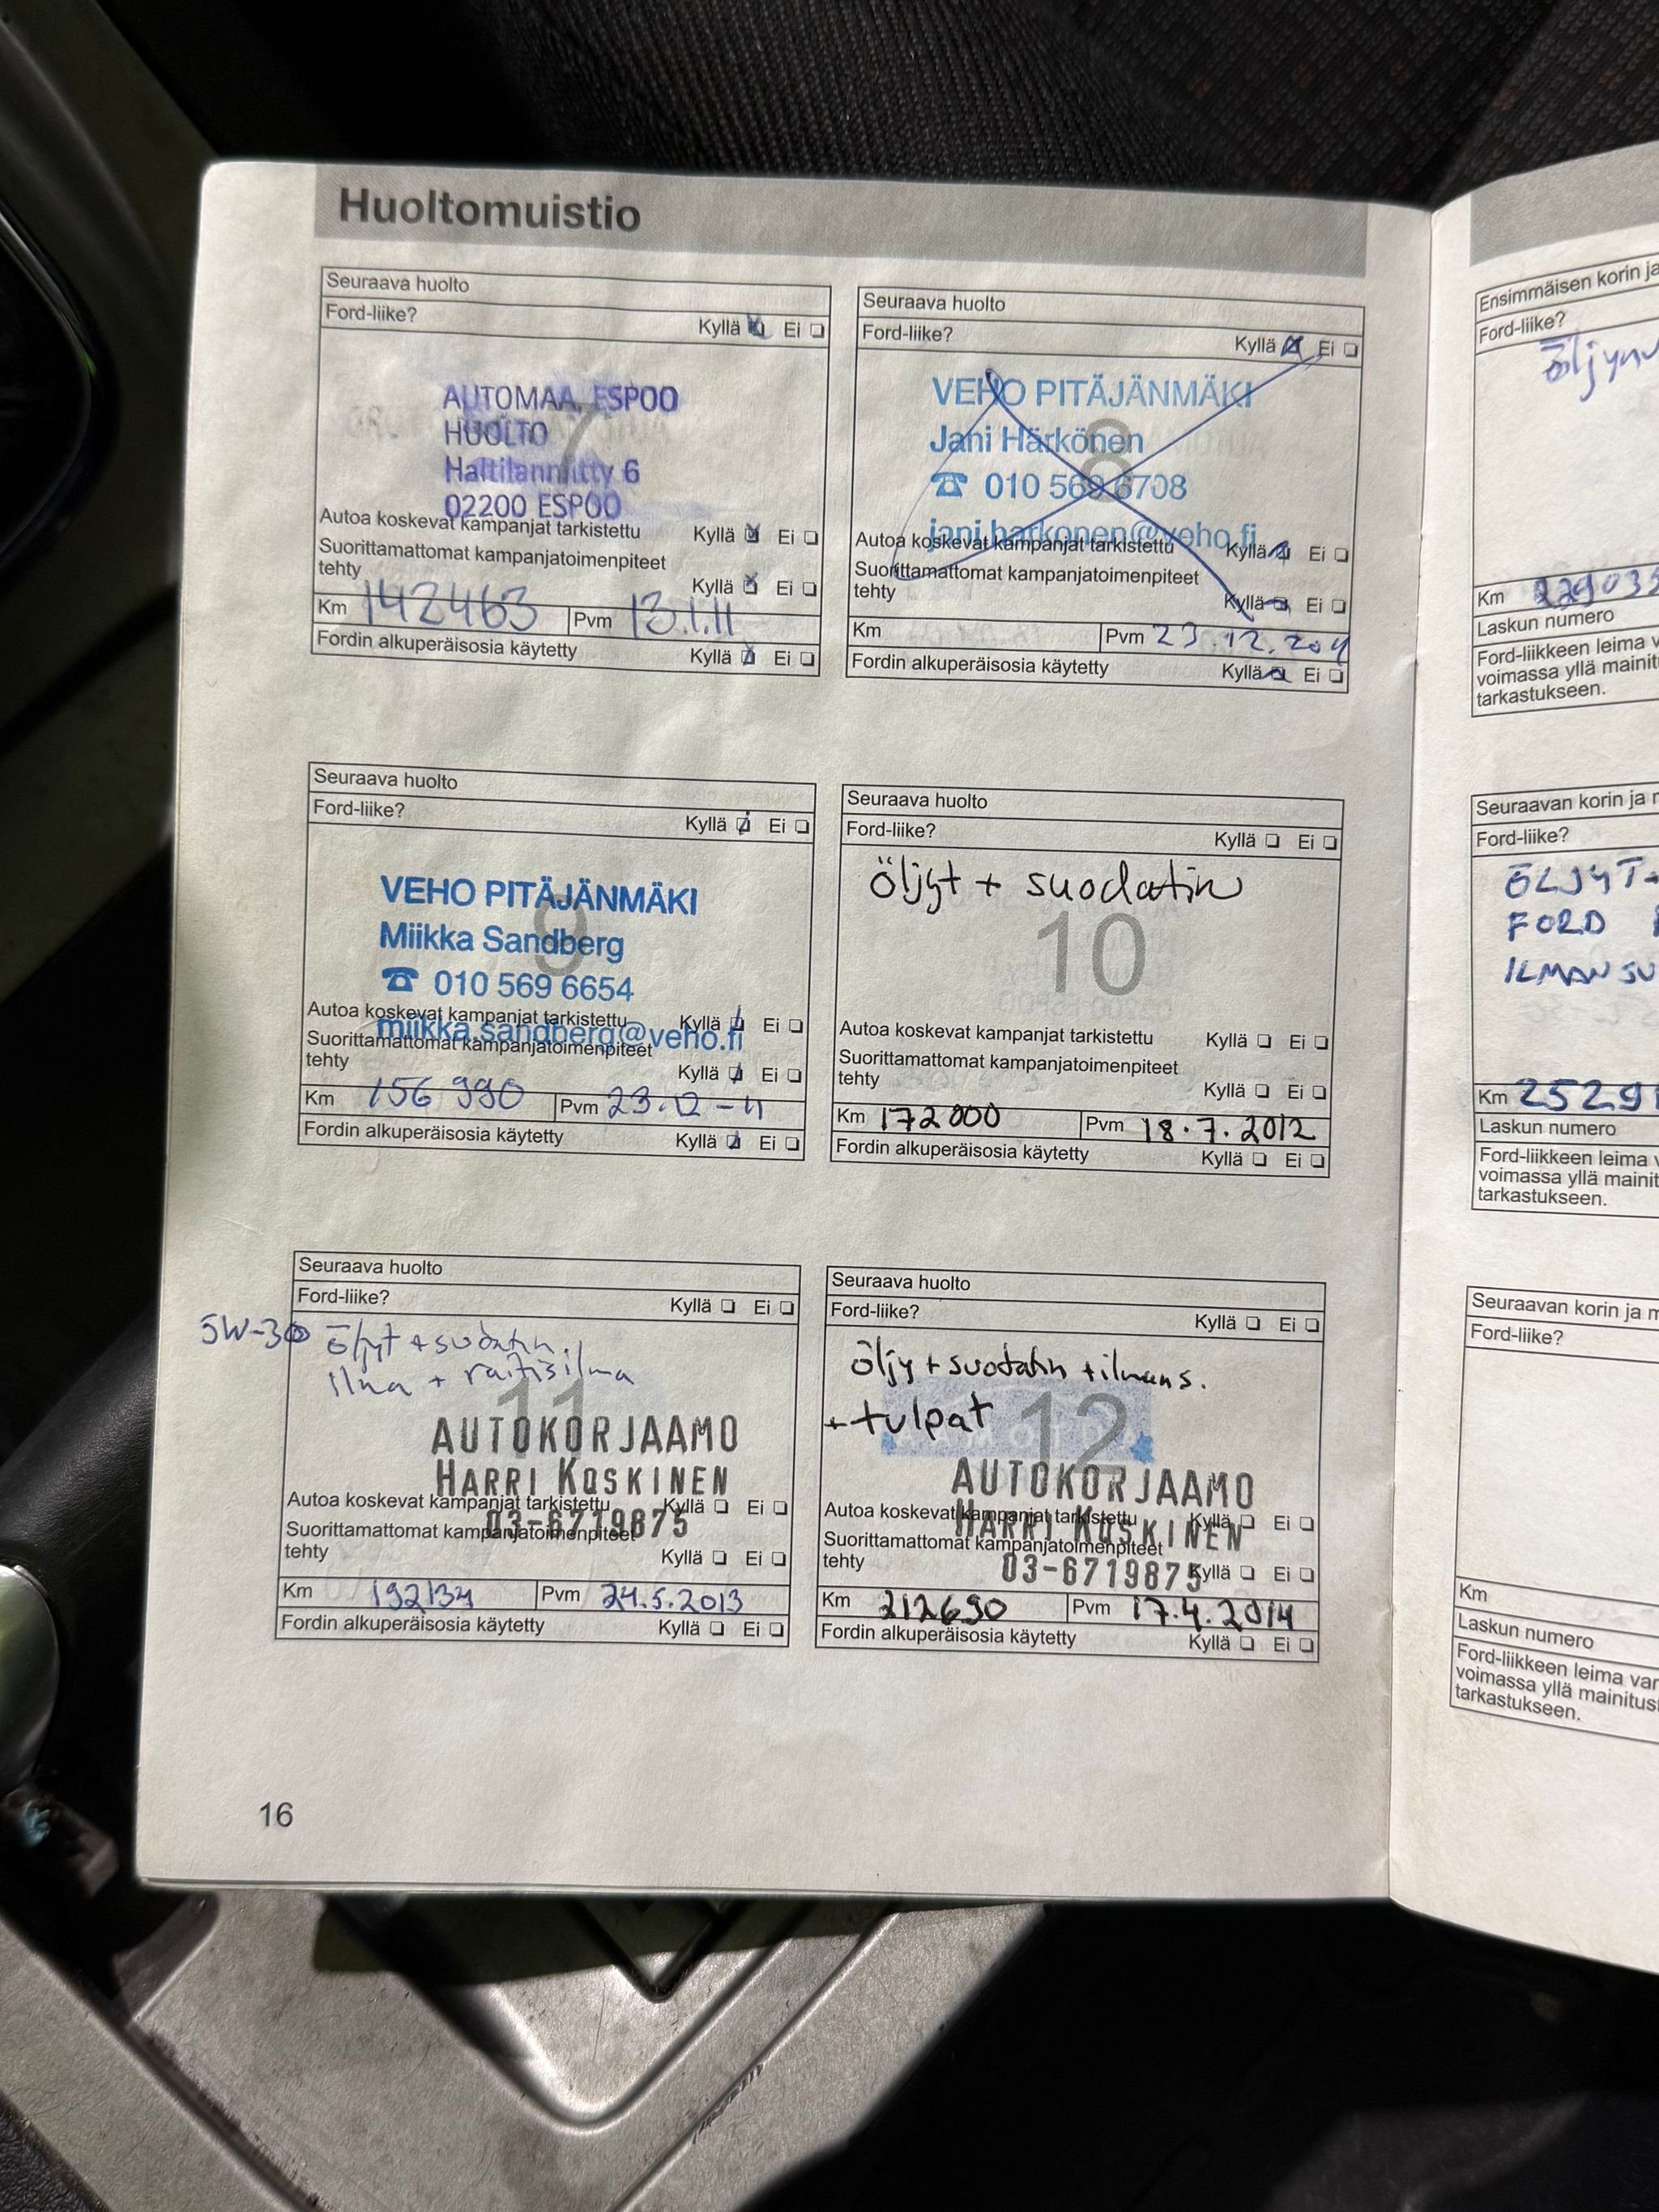 Huoltomuistio
Seuraava huolto
Ford-liike?
Kyllä Ei
7
AUTOMAA, ESPOO
HUOLTO
Haltilanniitty 6
02200 ESPOO
Autoa koskevat kampanjat tarkistettu Kyllä Ei
Suorittamattomat kampanjatoimenpiteet
tehty
Kyllä Ei
Km 142463 Pvm 13.1.11
Fordin alkuperäisosia käytetty Kyllä Ei
Seuraava huolto
Ford-liike?
Kyllä Ei
8
VEHO PITÄJÄNMÄKI
Jani Härkönen
☎ 010 569 6708
jani.harkonen@veho.fi
Autoa koskevat kampanjat tarkistettu Kyllä Ei
Suorittamattomat kampanjatoimenpiteet
tehty
Kyllä Ei
Km Pvm 23.12.2011
Fordin alkuperäisosia käytetty Kyllä Ei
Seuraava huolto
Ford-liike?
Kyllä Ei
9
VEHO PITÄJÄNMÄKI
Miikka Sandberg
☎ 010 569 6654
miikka.sandberg@veho.fi
Autoa koskevat kampanjat tarkistettu Kyllä Ei
Suorittamattomat kampanjatoimenpiteet
tehty
Kyllä Ei
Km 156 990 Pvm 23.12-11
Fordin alkuperäisosia käytetty Kyllä Ei
Seuraava huolto
Ford-liike?
Kyllä Ei
öljyt + suodatin
10
Autoa koskevat kampanjat tarkistettu Kyllä Ei
Suorittamattomat kampanjatoimenpiteet
tehty
Kyllä Ei
Km 172000 Pvm 18.7.2012
Fordin alkuperäisosia käytetty Kyllä Ei
Seuraava huolto
Ford-liike?
Kyllä Ei
5W-30 öljyt + suodatin.
ilma + raitisilma
11
AUTOKORJAAMO
HARRI KOSKINEN
03-6719875
Autoa koskevat kampanjat tarkistettu Kyllä Ei
Suorittamattomat kampanjatoimenpiteet
tehty
Kyllä Ei
Km 192134 Pvm 24.5.2013
Fordin alkuperäisosia käytetty Kyllä Ei
Seuraava huolto
Ford-liike?
Kyllä Ei
öljy + suodatin + ilmans.
+ tulpat
12
AUTOKORJAAMO
HARRI KOSKINEN
03-6719875
Autoa koskevat kampanjat tarkistettu Kyllä Ei
Suorittamattomat kampanjatoimenpiteet
tehty
Kyllä Ei
Km 212690 Pvm 17.4.2014
Fordin alkuperäisosia käytetty Kyllä Ei
16
Ensimmäisen korin ja
Ford-liike?
Km 229035
Laskun numero
Ford-liikkeen leima v
voimassa yllä mainit
tarkastukseen.
Seuraavan korin ja
Ford-liike?
ÖLJYT
FORD
ILMANSU
Km 25291
Laskun numero
Ford-liikkeen leima v
voimassa yllä mainit
tarkastukseen.
Seuraavan korin ja
Ford-liike?
Km
Laskun numero
Ford-liikkeen leima var
voimassa yllä mainitus
tarkastukseen.